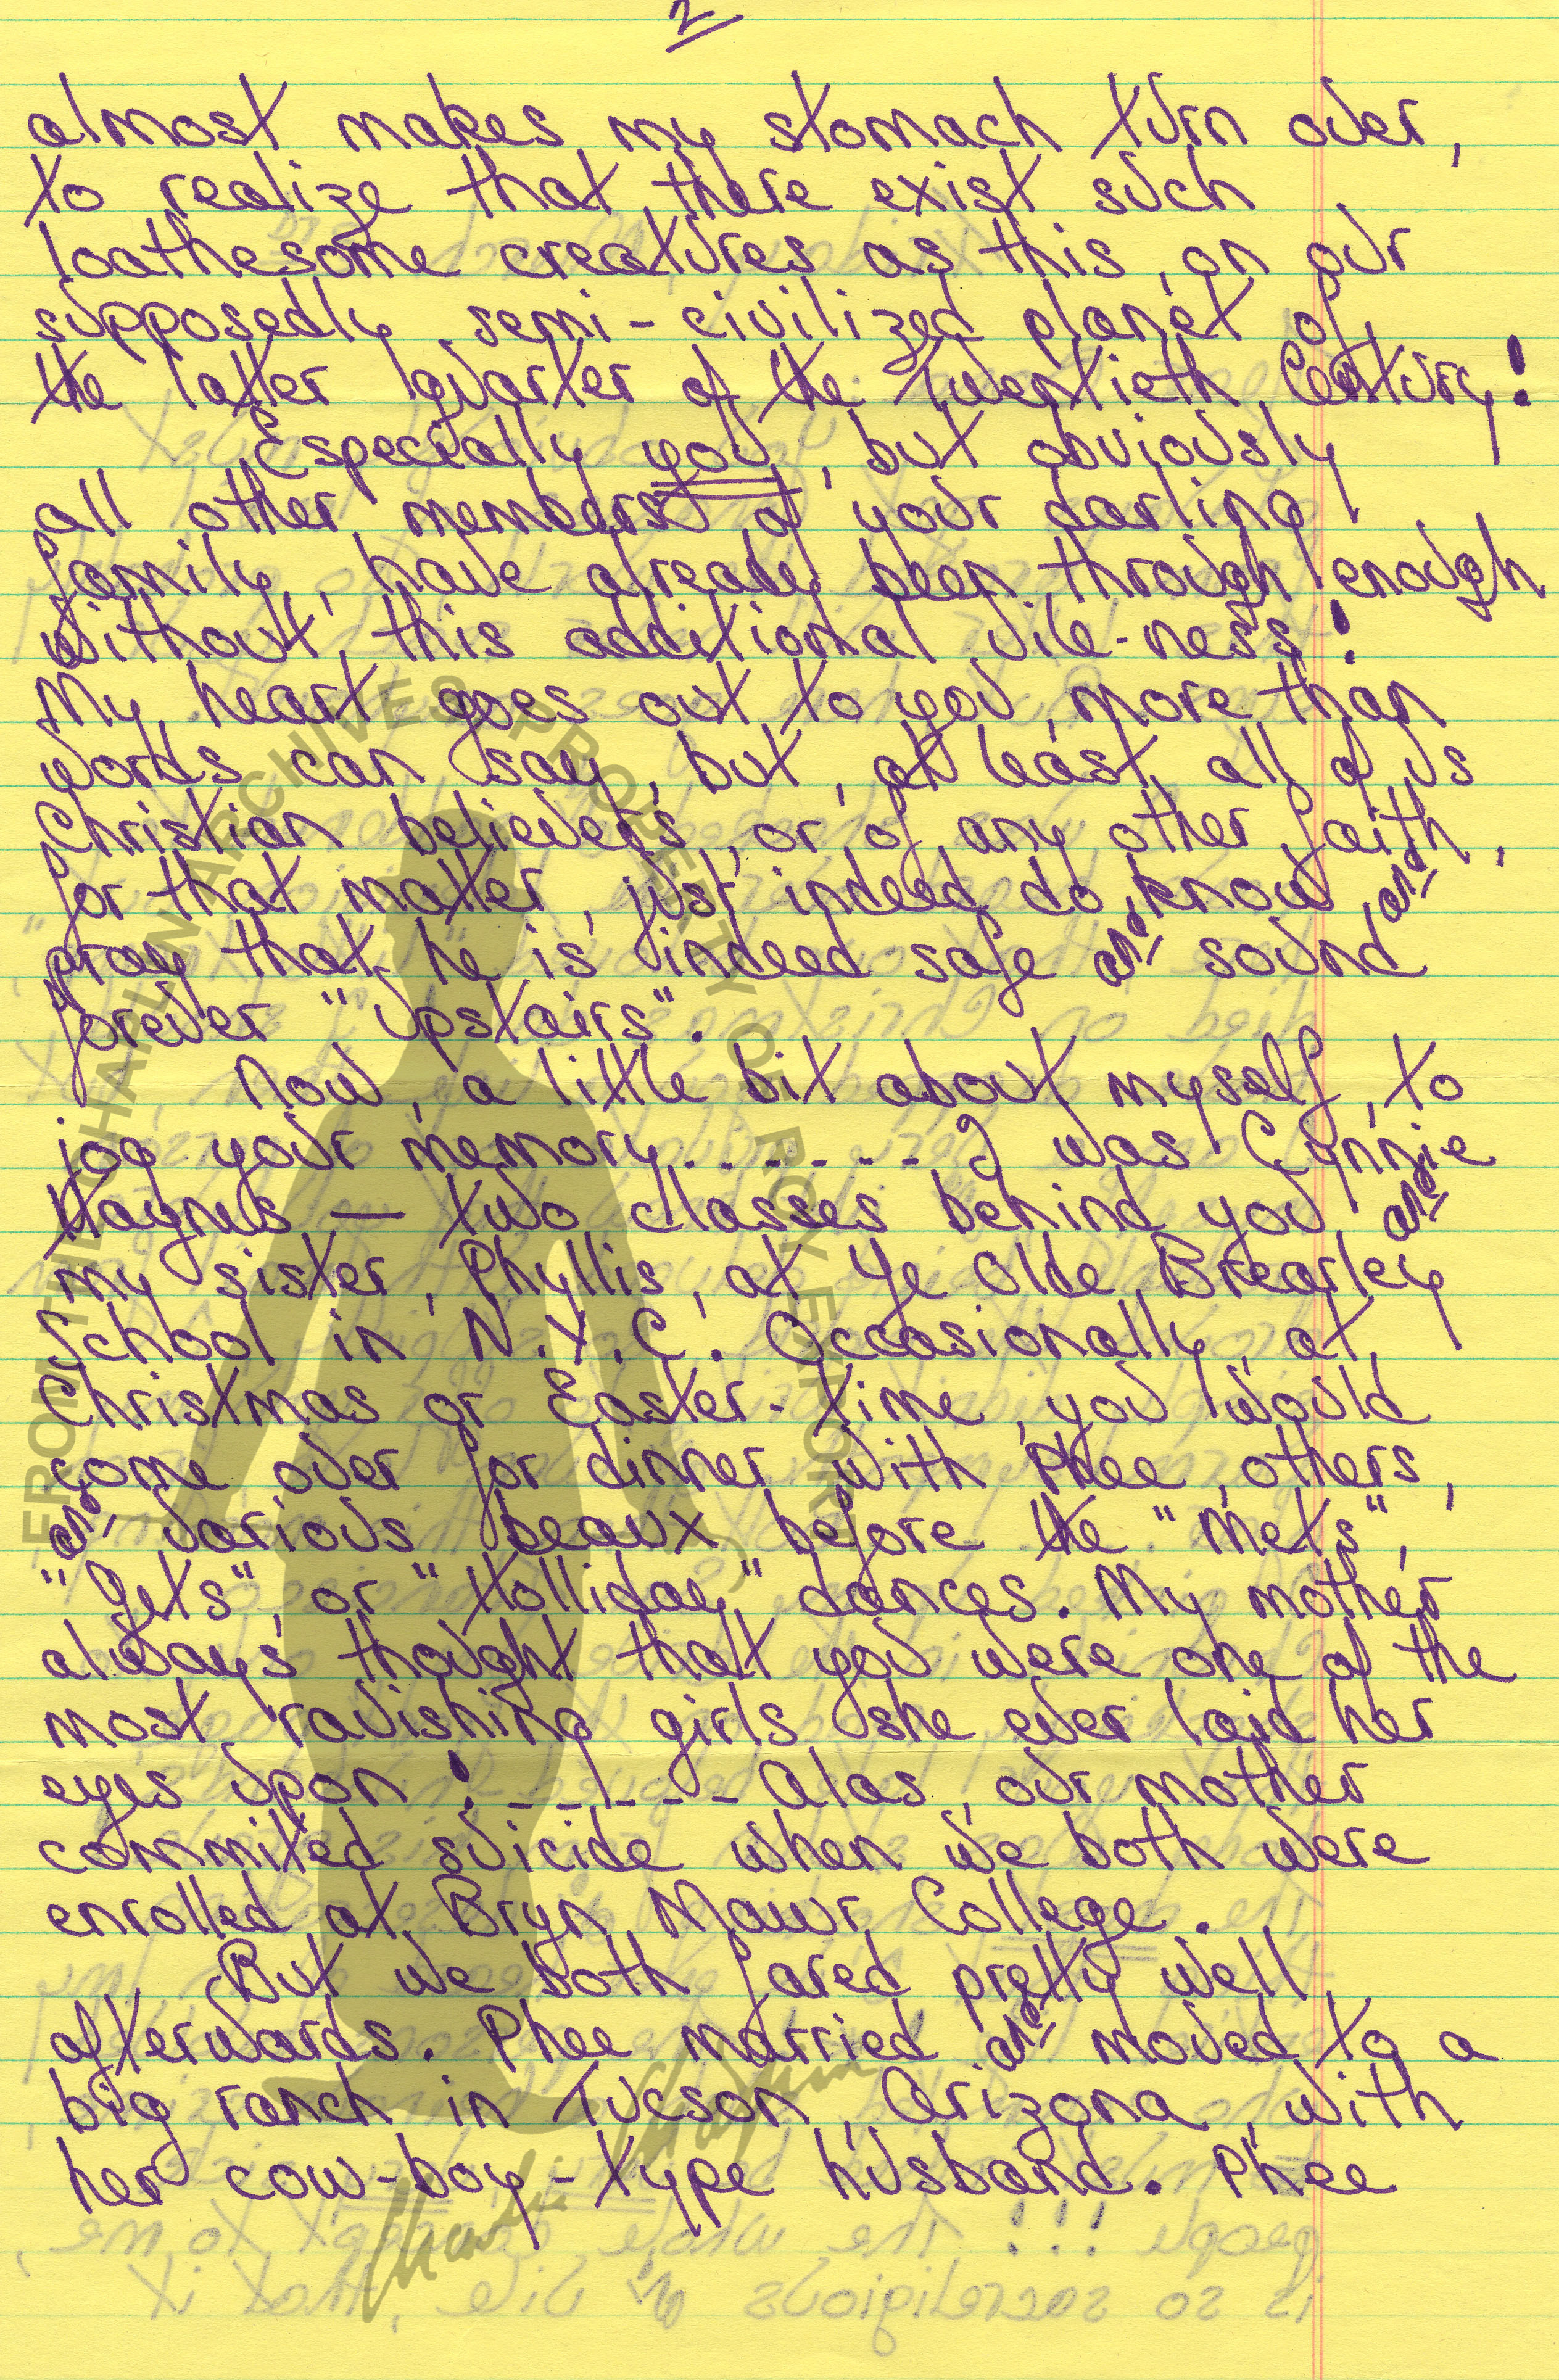 2
almost makes my stomach turn over,
to realize that there exist such
loathesome creatures as this, on our
supposedly semi-civilized planet of
the latter quarter of the Twentieth Century!
Especially you, but obviously
all other members of your darling
family, have already been through enough
without this additional vile-ness!
My heart goes out to you more than
words can say, but, at least all of us
Christian believers, or of any other faith,
for that matter, just indeed do know and
pray that he is indeed safe and sound
forever "Upstairs".
Now, a little bit about myself, to
jog your memory....... I was Cynnie
Haynes — two classes behind you and
my sister, Phyllis, at Ye Olde Brearley
School in N.Y.C. Occasionally, at
Christmas or Easter-time, you would
come over for dinner with Phee, others,
and various beaux before the "Mets",
"Gets", or "Holliday" dances. My mother
always thought that you were one of the
most ravishing girls she ever laid her
eyes upon!------ Alas, our mother
commited suicide when we both were
enrolled at Bryn Mawr College.
But we both fared pretty well
afterwards. Phee married and moved to a
big ranch in Tucson, Arizona, with
her cow-boy-type husband. Phee
people!!! The whole concept to me,
is so sacreligious and vile, that it
FROM THE CHARLIN ARCHIVES PROPERTY OF ROY EVPORT